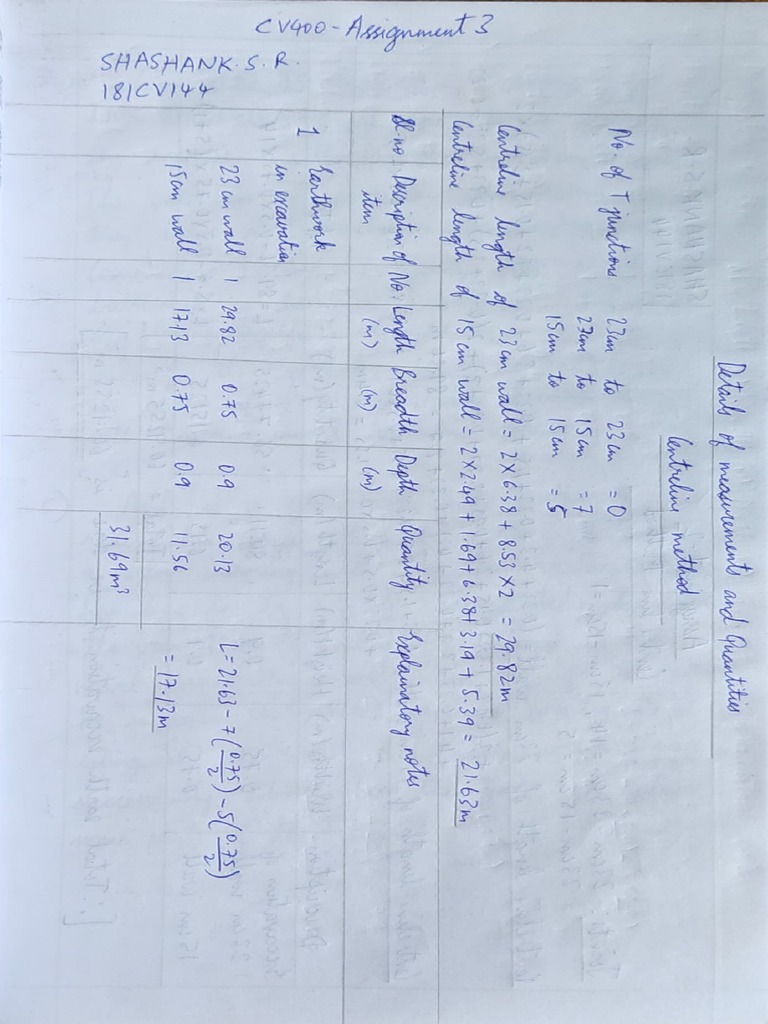 CV400 - Assignment 3
SHASHANK. S. R.
181CV144
Details of measurements and Quantities
Centreline method
No. of T junctions 23cm to 23cm = 0
23cm to 15cm = 7
15cm to 15cm = 5
Centreline length of 23cm wall = 2×6.38 + 8.53 ×2 = 29.82m
Centreline length of 15cm wall = 2×2.49 + 1.69+6.38+3.19 + 5.39 = 21.63m
Sl.no. Description of item No. Length (m) Breadth (m) Depth (m) Quantity Explainatory notes
1 Earthwork in excavation
23cm wall 1 29.82 0.75 0.9 20.13 L = 21.63 - 7(0.75/2) - 5(0.75/2)
15cm wall 1 17.13 0.75 0.9 11.56 = 17.13m
31.69m³